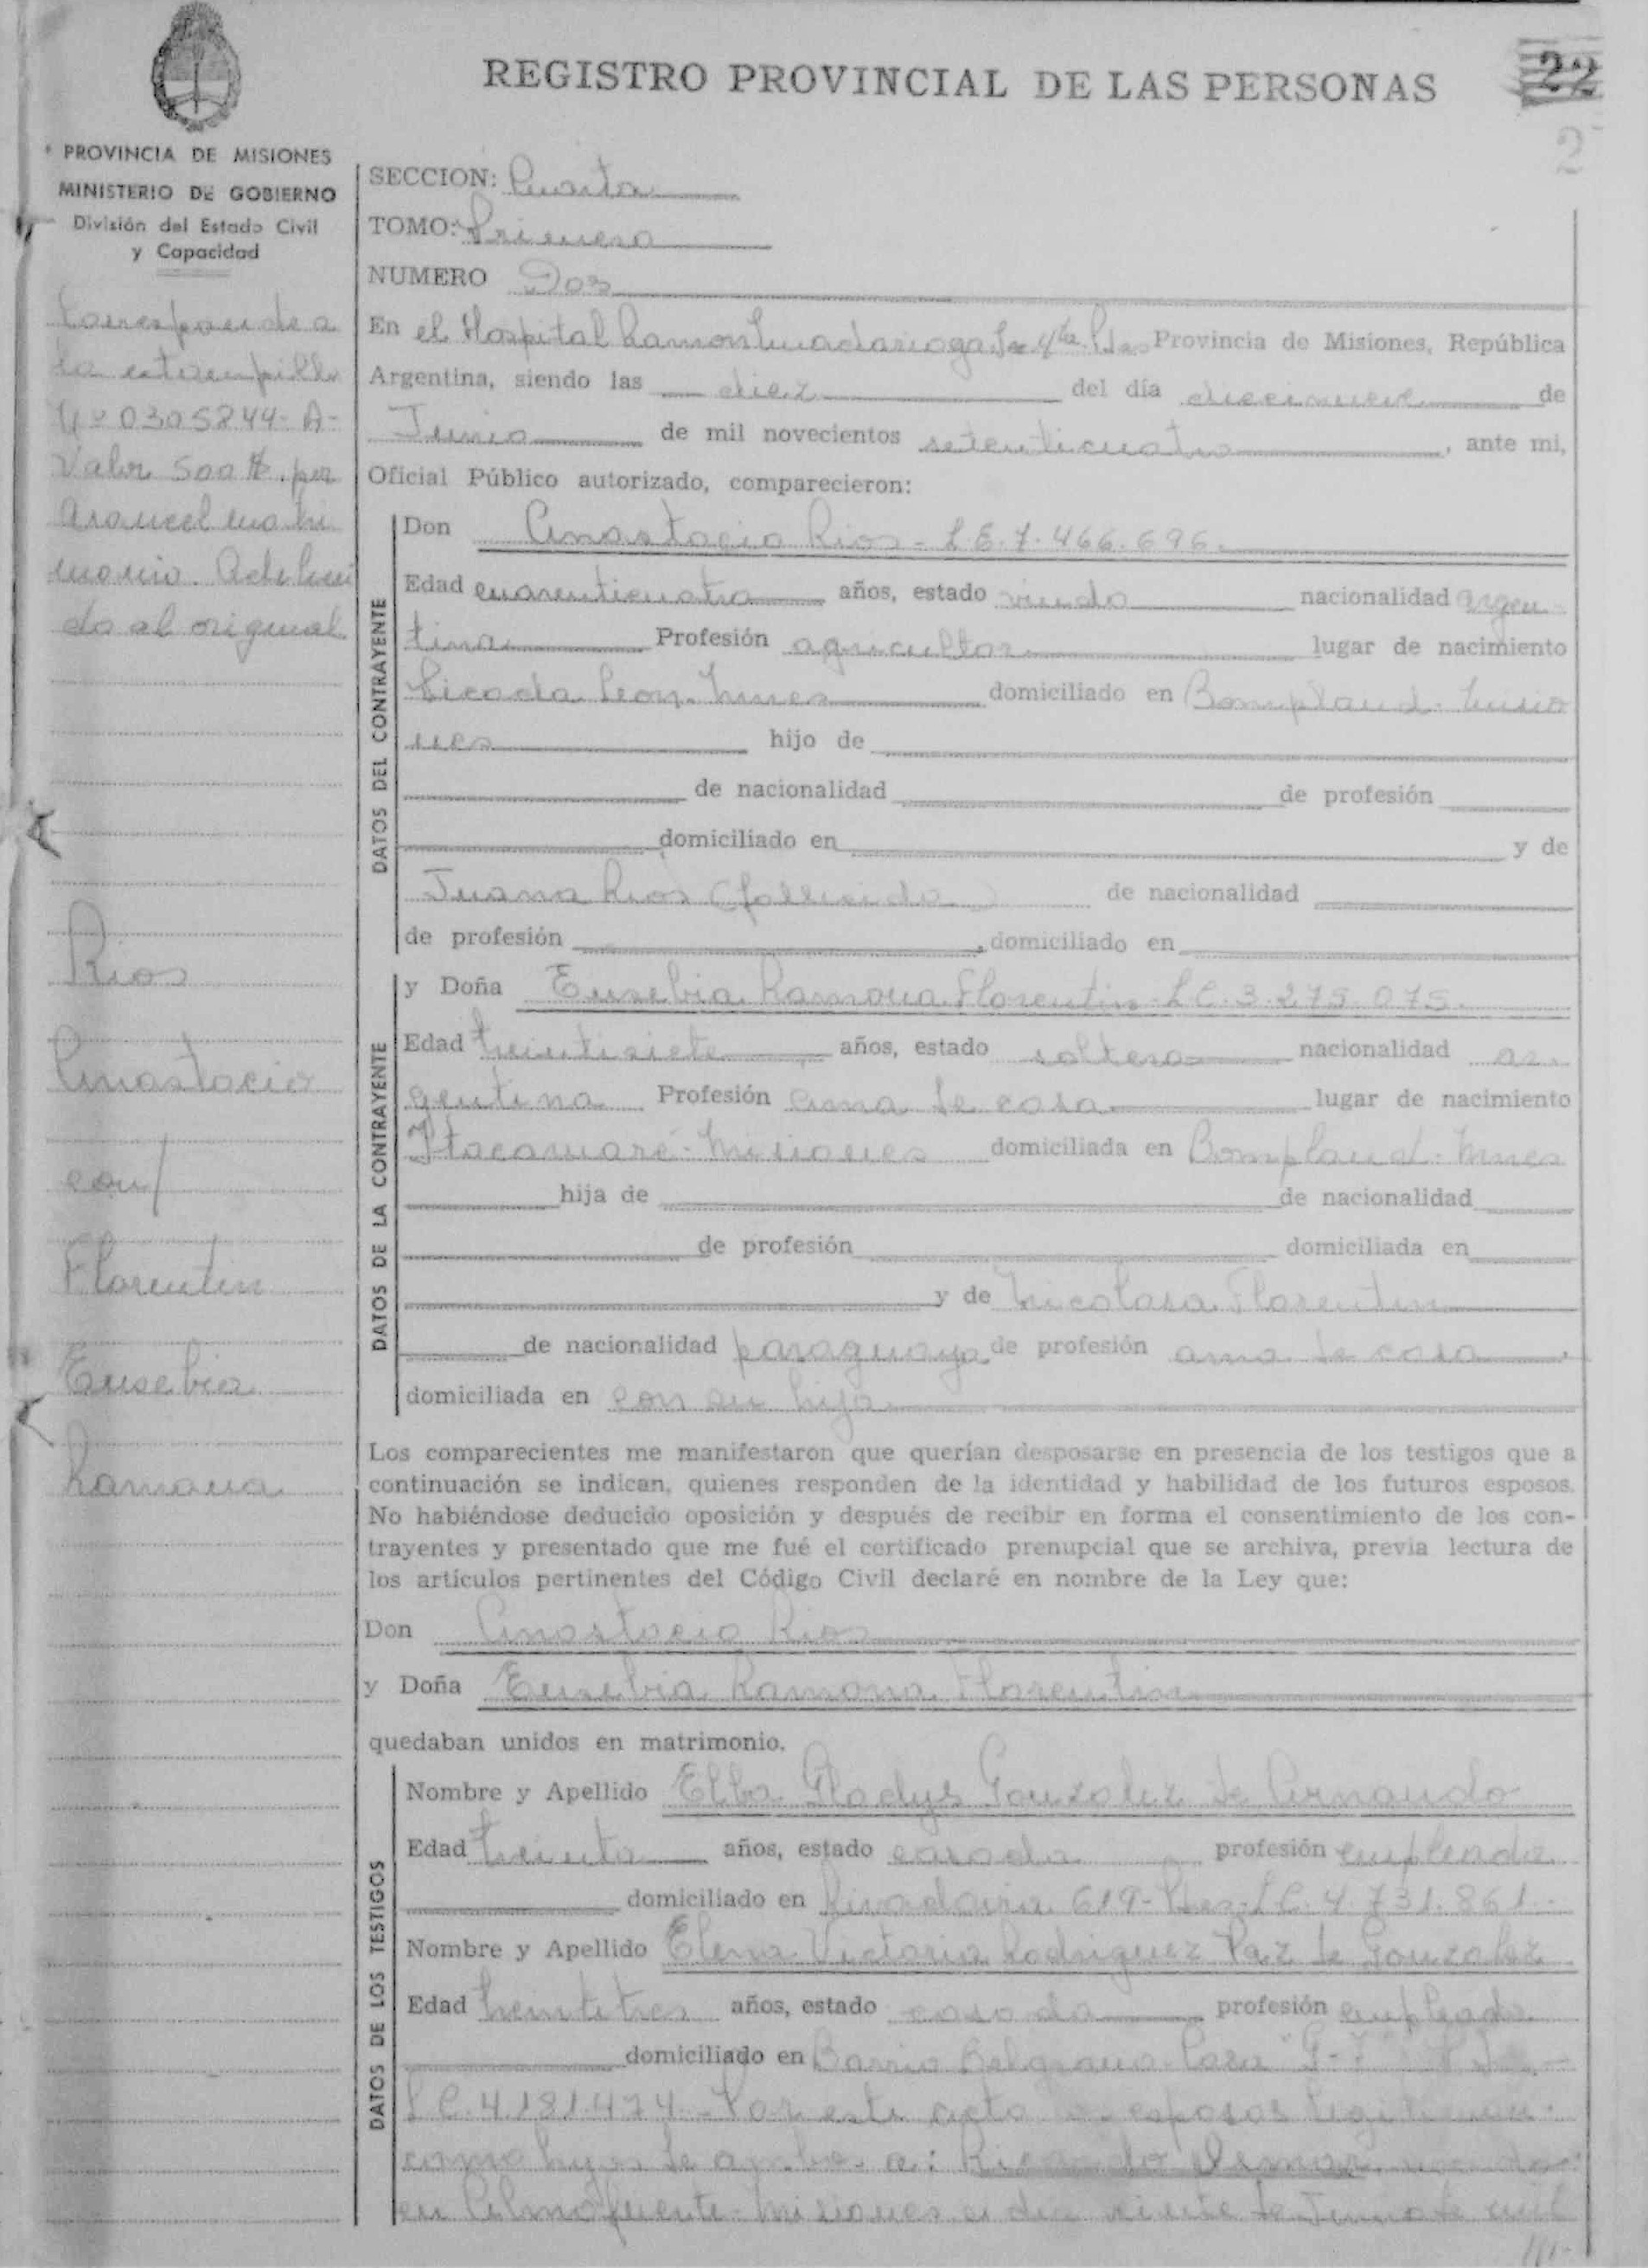 REGISTRO PROVINCIAL DE LAS PERSONAS
22
2
PROVINCIA DE MISIONES
MINISTERIO DE GOBIERNO
División del Estado Civil
y Capacidad
Corresponde a
la estampilla
Nº 0305844-A-
Valor 500 $. por
arancel matri
monio. Adheri
do al original
Rios
Anastacio
con/
Florentin
Eusebia
Ramona
SECCION: Cuarta
TOMO: Primero
NUMERO Dos
En el Hospital Ramon Madariaga Sec 4ta Pdas Provincia de Misiones, República
Argentina, siendo las diez del día diecinueve de
Junio de mil novecientos setenticuatro, ante mi,
Oficial Público autorizado, comparecieron:
DATOS DEL CONTRAYENTE
Don Anastacio Rios - L.E. 7.466.696.
Edad cuarenticuatro años, estado viudo nacionalidad argen
tina Profesión agricultor lugar de nacimiento
Picada Leon-Mnes domiciliado en Bompland-Misio
nes hijo de
de nacionalidad de profesión
domiciliado en y de
Juana Rios (fallecida) de nacionalidad
de profesión, domiciliado en
DATOS DE LA CONTRAYENTE
y Doña Eusebia Ramona Florentin-LC.3.275.075.
Edad treintisiete años, estado soltera nacionalidad ar
gentina Profesión ama de casa lugar de nacimiento
Itacaruaré-Misiones domiciliada en Bompland-Mnes
hija de de nacionalidad
de profesión domiciliada en
y de Nicolasa Florentin
de nacionalidad paraguaya de profesión ama de casa,
domiciliada en con su hija
Los comparecientes me manifestaron que querían desposarse en presencia de los testigos que a
continuación se indican, quienes responden de la identidad y habilidad de los futuros esposos.
No habiéndose deducido oposición y después de recibir en forma el consentimiento de los con-
trayentes y presentado que me fué el certificado prenupcial que se archiva, previa lectura de
los artículos pertinentes del Código Civil declaré en nombre de la Ley que:
Don Anastacio Rios
y Doña Eusebia Ramona Florentin
quedaban unidos en matrimonio.
DATOS DE LOS TESTIGOS
Nombre y Apellido Elba Gladys Gonzalez de
Edad treinta años, estado casada profesión empleada
domiciliado en Rivadavia 619-Pdas-LC.4.731.861-
Nombre y Apellido Elena Victoria Rodriguez Paz de Gonzalez
Edad treintitres años, estado casada profesión empleada
domiciliado en Barrio Belgrano Casa
LC.4181474-Por este acto esposos legitiman
como hijos de ambos a: Ricardo nacido
en Almafuerte-Misiones el dia veinte de Junio de mil
///-